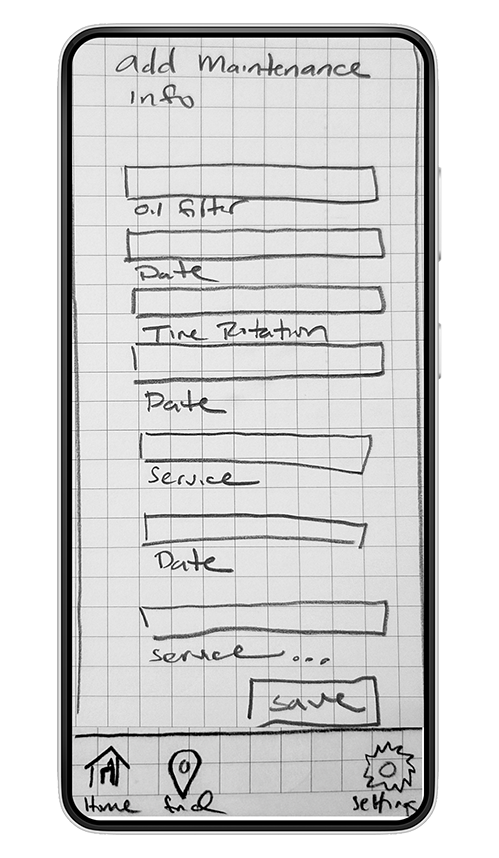 add maintenance
info
Oil filter
Date
Tire Rotation
Date
Service
Date
service ...
save
Home
find
settings